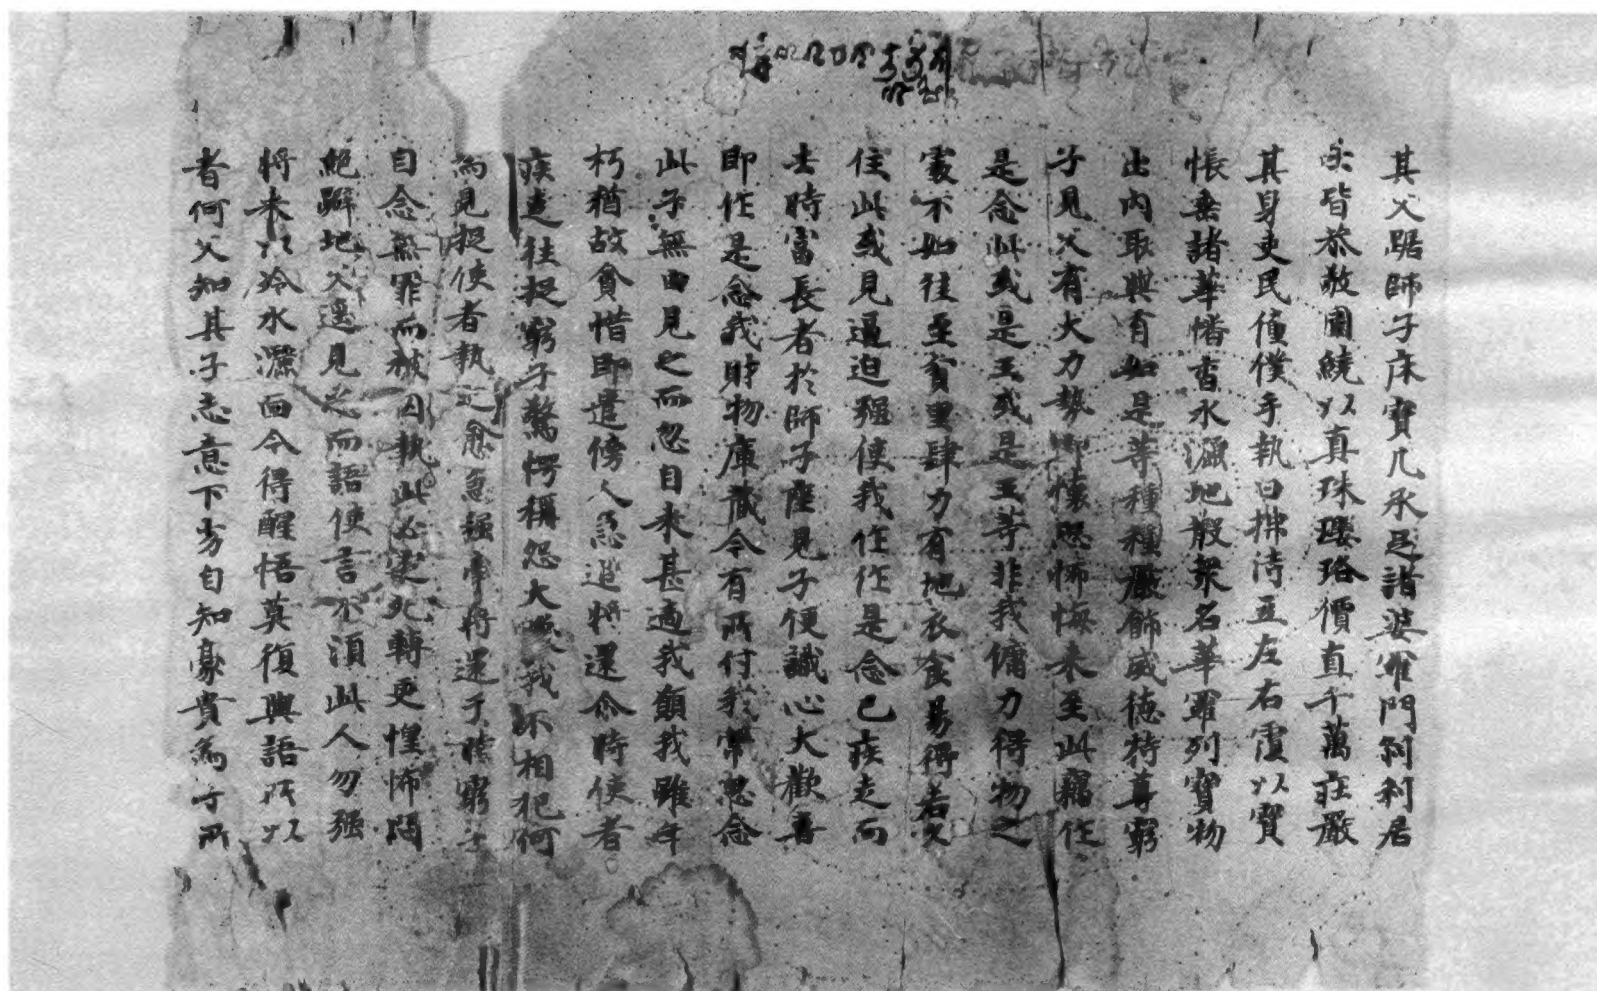 其父踞師子床寶几承足諸婆羅門剎利居
士皆恭敬圍繞以真珠瓔珞價直千萬莊嚴
其身吏民僮僕手執白拂侍立左右覆以寶
帳垂諸華幡香水灑地散衆名華羅列寶物
出內取與有如是等種種嚴飾威德特尊窮
子見父有大力勢即懷恐怖悔來至此竊作
是念此或是王或是王等非我傭力得物之
處不如往至貧里肆力有地衣食易得若久
住此或見逼迫強使我作作是念已疾走而
去時富長者於師子座見子便識心大歡喜
即作是念我財物庫藏今有所付我常思念
此子無由見之而忽自來甚適我願我雖年
朽猶故貪惜即遣傍人急追將還尒時使者
疾走往捉窮子驚愕稱怨大喚我不相犯何
為見捉使者執之愈急强牽將還于時窮子
自念無罪而被囚執此必定死轉更惶怖悶
絕躃地父遥見之而語使言不須此人勿强
將來以冷水灑面令得醒悟莫復與語所以
者何父知其子志意下劣自知豪貴為子所